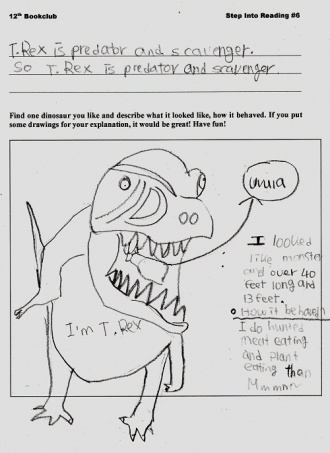 12th Bookclub Step Into Reading #6
T.Rex is predator and scavenger.
So T.Rex is predator and scavenger
Find one dinosaur you like and describe what it looked like, how it behaved. If you put
some drawings for your explanation, it would be great! Have fun!
I'm T.Rex
I looked
like monster
and over 40
feet long and
13 feet.
How it behave
I do hunted
meat eating
and plant
eating than
Mmmm